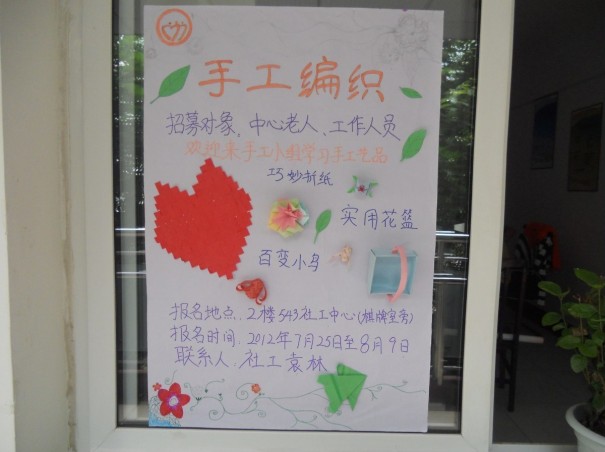 手工编织
招募对象：中心老人、工作人员
欢迎来手工小组学习手工艺品
巧妙折纸
实用花篮
百变小鸟
报名地点：2楼543社工中心(棋牌室旁)
报名时间：2012年7月25日至8月9日
联系人：社工袁林